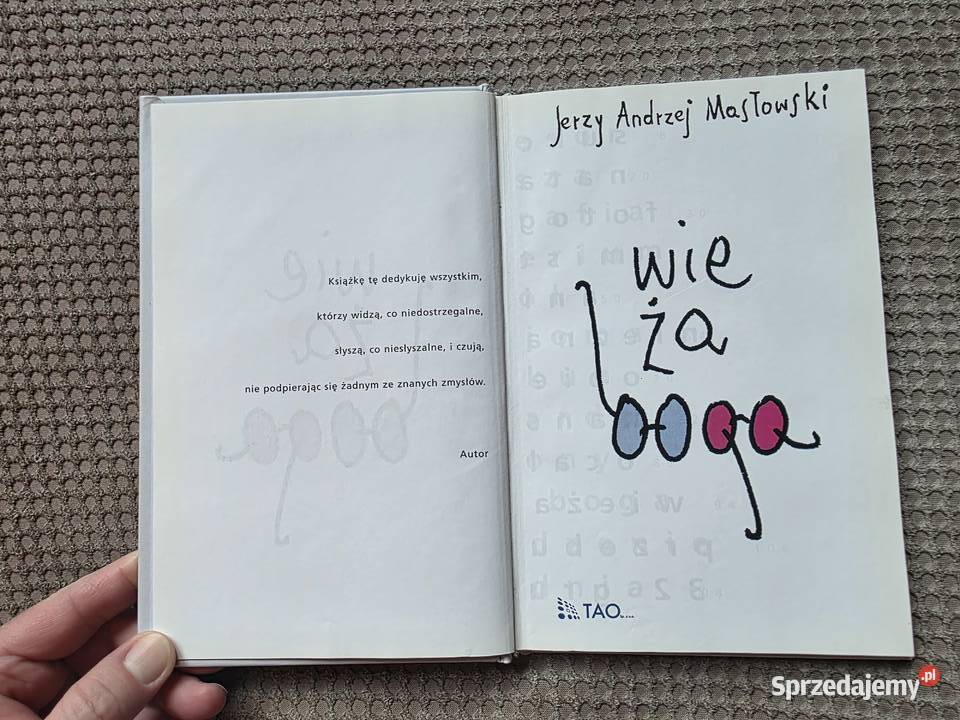 Książkę tę dedykuję wszystkim,
którzy widzą, co niedostrzegalne,
słyszą, co niesłyszalne, i czują,
nie podpierając się żadnym ze znanych zmysłów.
Autor
Jerzy Andrzej Masłowski
wie
ża
TAO
Sprzedajemy.pl